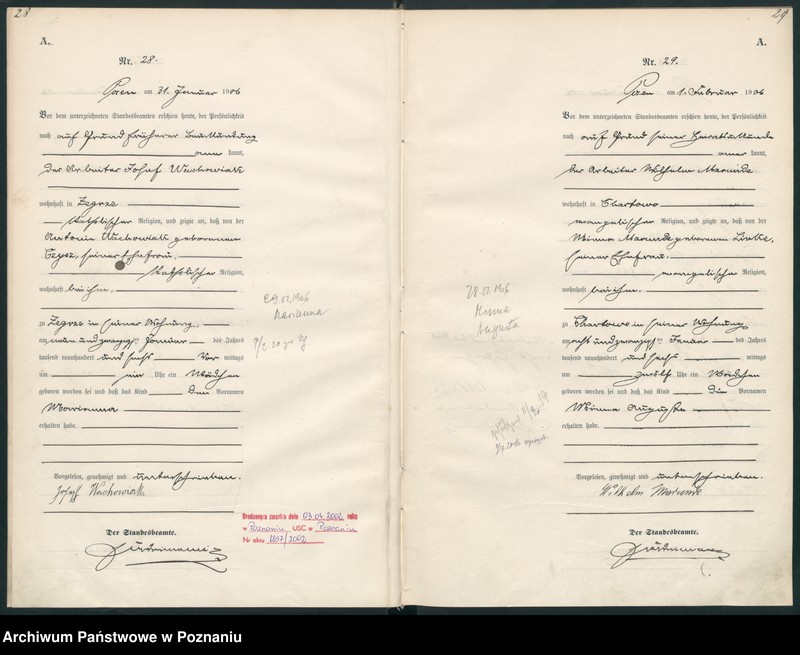 28
A.
Nr. 28.
Posen am 31. Januar 1906
Vor dem unterzeichneten Standesbeamten erschien heute, der Persönlichkeit
nach auf Grund früherer Beurkundung
kannt,
der Arbeiter Josef Wachowiak
wohnhaft in Zegrze
katholischer Religion, und zeigte an, daß von der
Antonie Wachowiak geborenen
seiner Ehefrau,
katholischer Religion,
wohnhaft bei ihm,
zu Zegrze in seiner Wohnung,
am neun und zwanzigsten Januar des Jahres
tausend neunhundert und sechs Vor mittags
um Uhr ein Mädchen
geboren worden sei und daß das Kind den Vornamen
Marianna
erhalten habe.
Vorgelesen, genehmigt und unterschrieben.
Józef Wachowiak
Der Standesbeamte.
29.01.1906
Marianna
Urodzony/a zmarł/a dnia 03.04.2002 roku
w Poznaniu USC w Poznaniu
Nr aktu 1157/2002
29
A.
Nr. 29.
Posen am 1. Februar 1906
Vor dem unterzeichneten Standesbeamten erschien heute, der Persönlichkeit
nach auf Grund seiner Heiratsurkunde
kannt,
der Arbeiter Wilhelm Marunde
wohnhaft in Chartowo
evangelischer Religion, und zeigte an, daß von der
Minna Marunde geborenen
seiner Ehefrau,
evangelischer Religion,
wohnhaft bei ihm,
zu Chartowo in seiner Wohnung
am acht und zwanzigsten Januar des Jahres
tausend neunhundert und sechs mittags
um zwölf Uhr ein Mädchen
geboren worden sei und daß das Kind die Vornamen
Minna Auguste
erhalten habe.
Vorgelesen, genehmigt und unterschrieben.
Wilhelm Marunde
Der Standesbeamte.
28.01.1906
Minna
Augusta
Archiwum Państwowe w Poznaniu